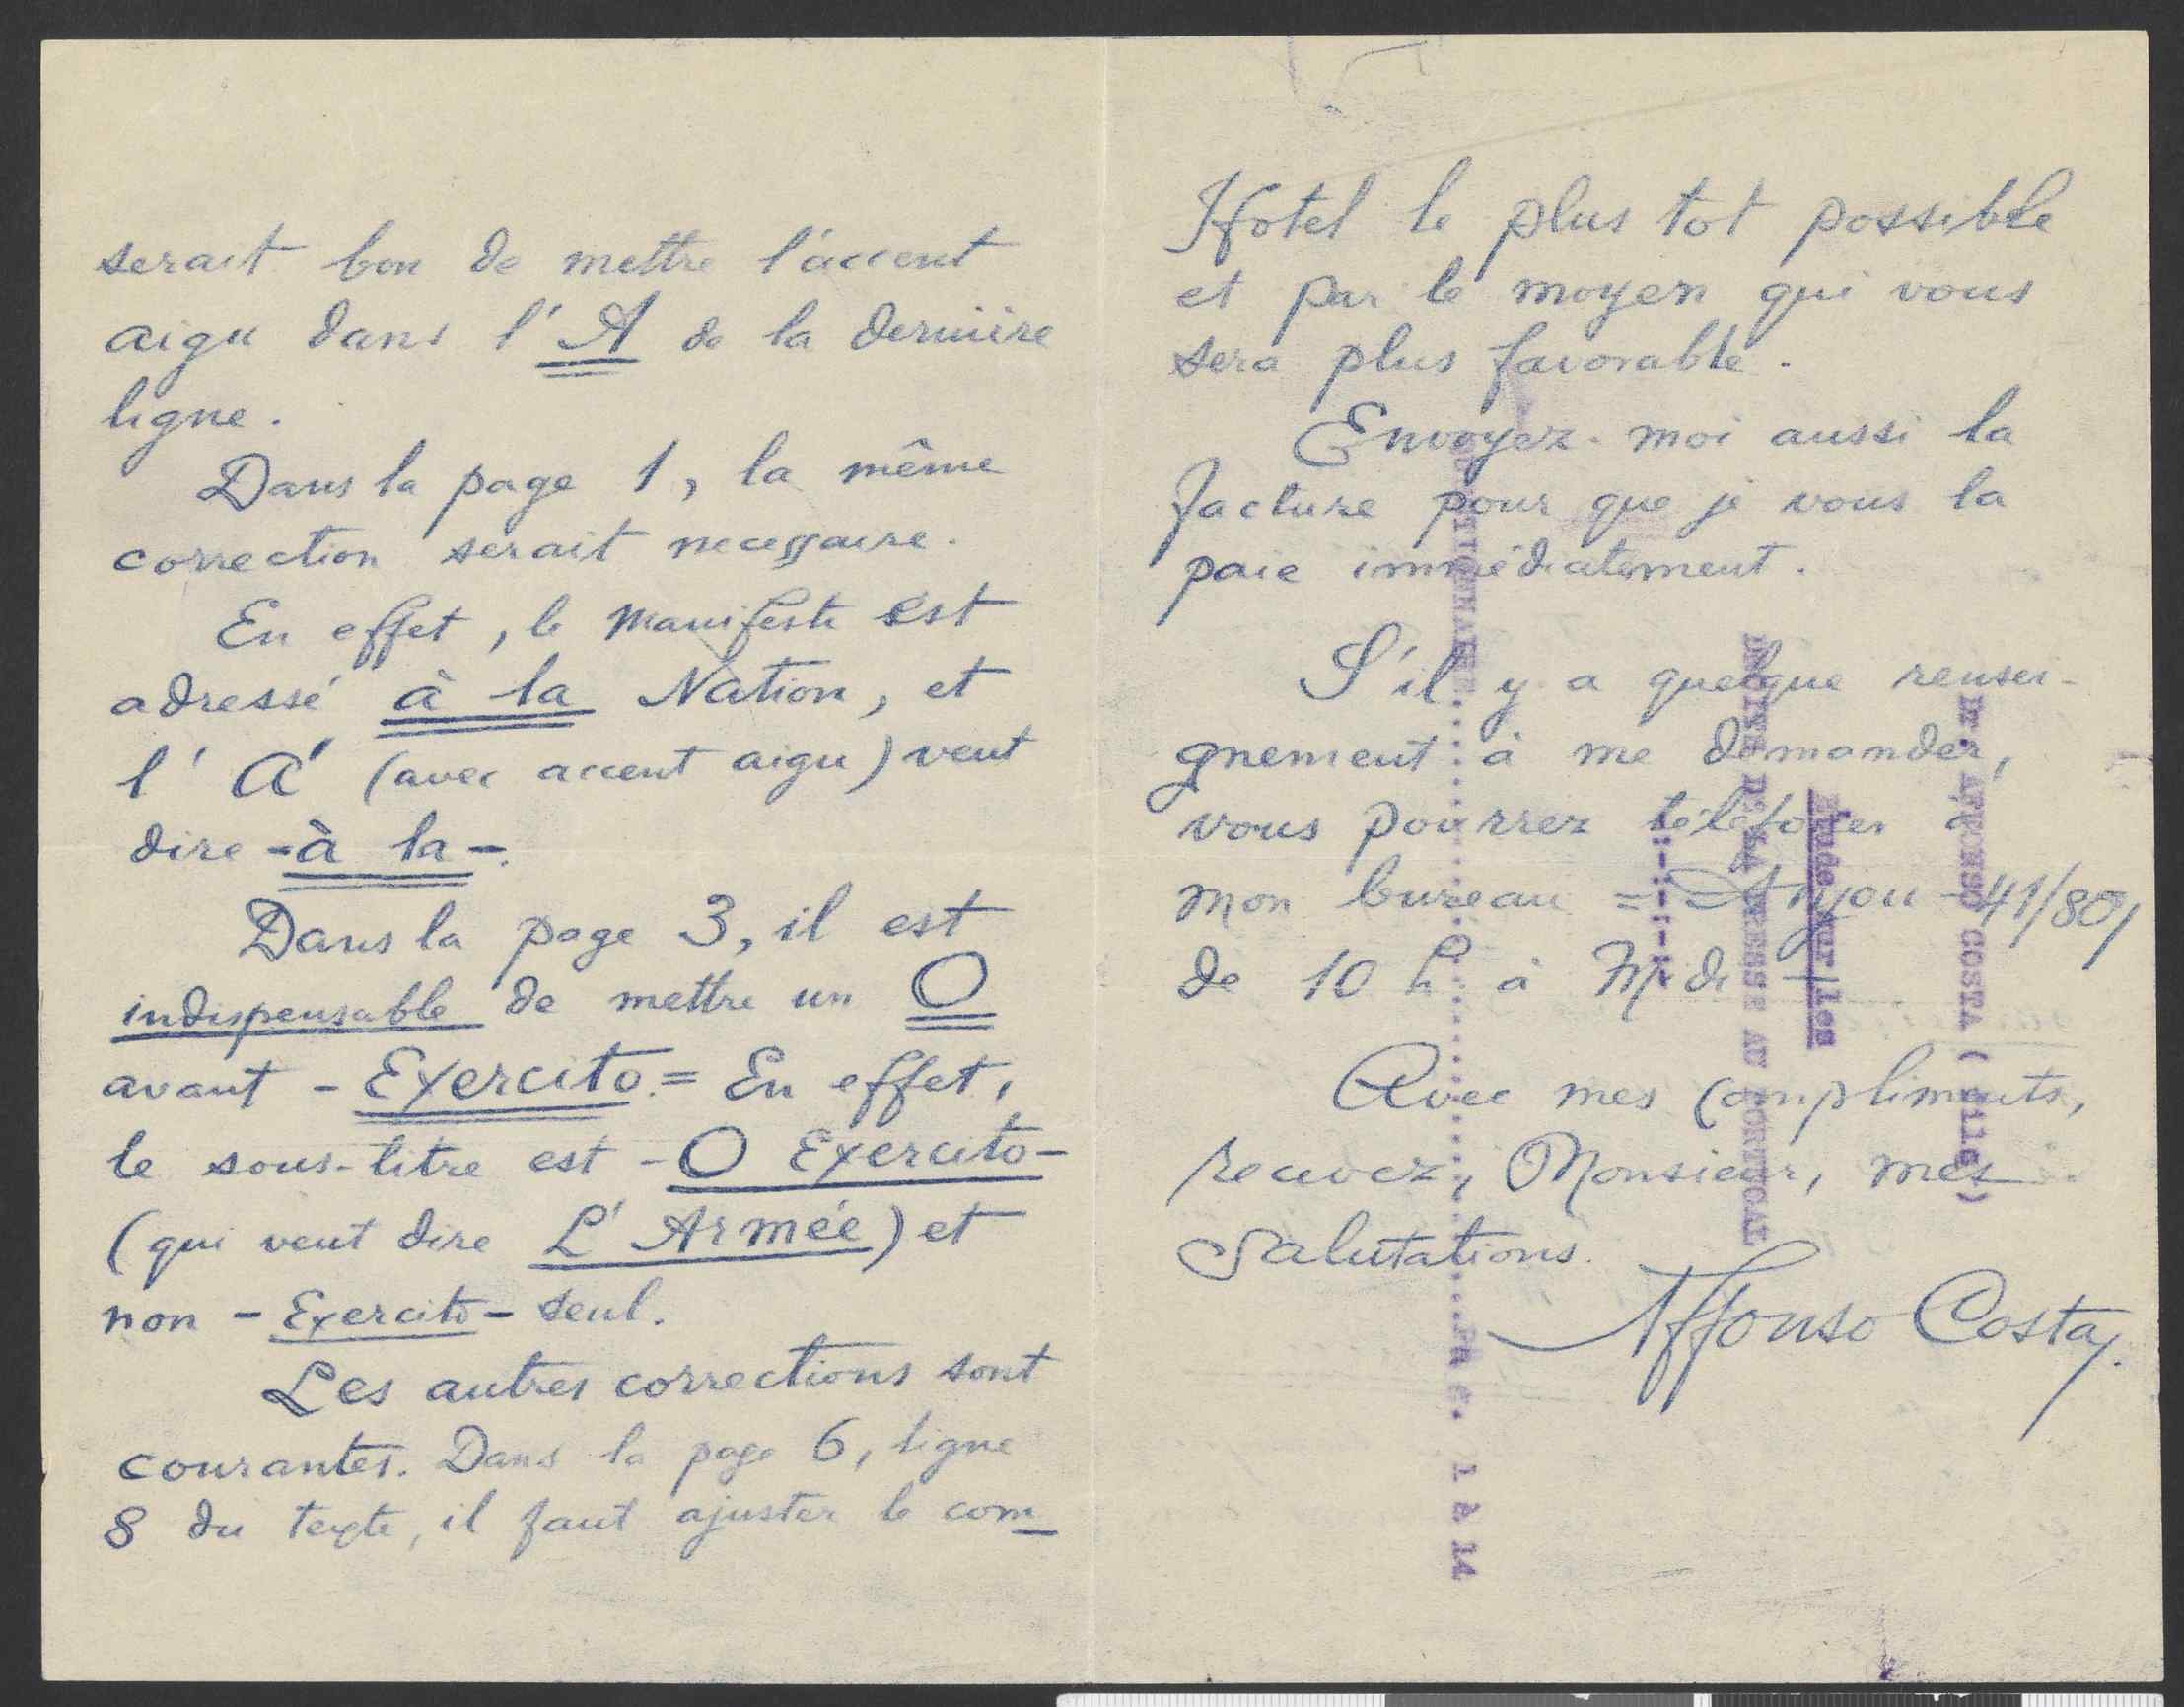 serait bon de mettre l'accent
aigu dans l'A de la dernière
ligne.
Dans la page 1, la même
correction serait necessaire.
En effet, le manifeste est
adressé à la Nation, et
l'Á (avec accent aigu) veut
dire - à la -.
Dans la page 3, il est
indispensable de mettre un O
avant - Exercito = En effet,
le sous-titre est - O Exercito -
(qui veut dire L'Armée) et
non - Exercito - seul.
Les autres corrections sont
courantes. Dans la page 6, ligne
8 du texte, il faut ajuster le com-
Hotel le plus tot possible
et par le moyen qui vous
sera plus favorable.
Envoyez-moi aussi la
facture pour que je vous la
paie immédiatement.
S'il y a quelque rensei-
gnement à me demander,
vous pourrez
mon bureau = Anjou - 41/80,
de 10 h. à Midi
Avec mes compliments,
recevez, Monsieur, mes
Salutations.
Affonso Costa.
Dr. AFFONSO COSTA (
LA PRESSE AU PORTUGAL
sur les
1 à 14